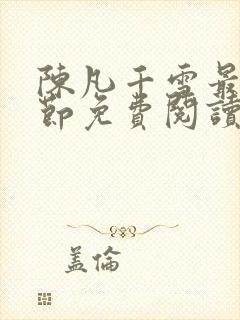 陳凡千雪最
節免費閱讀
盖倫